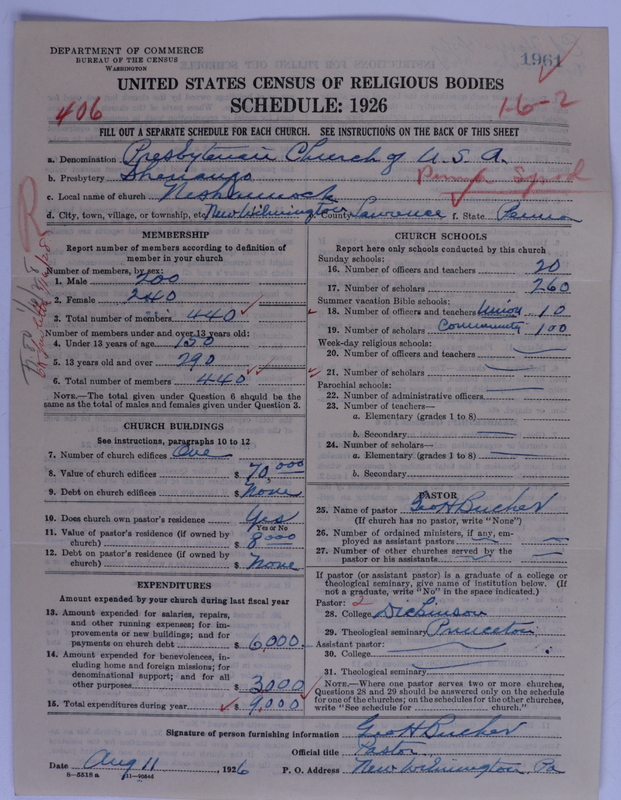 DEPARTMENT OF COMMERCE
BUREAU OF THE CENSUS
WASHINGTON
1961
UNITED STATES CENSUS OF RELIGIOUS BODIES
SCHEDULE: 1926
406
1-6-2
FILL OUT A SEPARATE SCHEDULE FOR EACH CHURCH. SEE INSTRUCTIONS ON THE BACK OF THIS SHEET
a. Denomination Presbyterian Church of U.S.A.
b. Presbytery Shenango
c. Local name of church Neshannock
d. City, town, village, or township, etc New Wilmington County Lawrence f. State Penna
MEMBERSHIP
Report number of members according to definition of member in your church
Number of members, by sex:
1. Male 200
2. Female 240
3. Total number of members 440
Number of members under and over 13 years old:
4. Under 13 years of age 150
5. 13 years old and over 290
6. Total number of members 440
NOTE.—The total given under Question 6 should be the same as the total of males and females given under Question 3.
CHURCH BUILDINGS
See instructions, paragraphs 10 to 12
7. Number of church edifices One
8. Value of church edifices $ 70,000
9. Debt on church edifices $ None
10. Does church own pastor's residence Yes
Yes or No
11. Value of pastor's residence (if owned by church) $ 8000
12. Debt on pastor's residence (if owned by church) $ None
EXPENDITURES
Amount expended by your church during last fiscal year
13. Amount expended for salaries, repairs, and other running expenses; for improvements or new buildings; and for payments on church debt $ 6,000
14. Amount expended for benevolences, including home and foreign missions; for denominational support; and for all other purposes $ 3000
15. Total expenditures during year $ 9,000
CHURCH SCHOOLS
Report here only schools conducted by this church
Sunday schools:
16. Number of officers and teachers 20
17. Number of scholars 260
Summer vacation Bible schools:
18. Number of officers and teachers Union 10
19. Number of scholars Community 100
Week-day religious schools:
20. Number of officers and teachers
21. Number of scholars
Parochial schools:
22. Number of administrative officers
23. Number of teachers—
a. Elementary (grades 1 to 8)
b. Secondary
24. Number of scholars—
a. Elementary (grades 1 to 8)
b. Secondary
PASTOR
25. Name of pastor Geo H Bucher
(If church has no pastor, write "None")
26. Number of ordained ministers, if any, employed as assistant pastors
27. Number of other churches served by the pastor or his assistants
If pastor (or assistant pastor) is a graduate of a college or theological seminary, give name of institution below. (If not a graduate, write "No" in the space indicated.)
Pastor: 2
28. College Dickinson
29. Theological seminary Princeton
Assistant pastor:
30. College
31. Theological seminary
NOTE.—Where one pastor serves two or more churches, Questions 28 and 29 should be answered only on the schedule for one of the churches; on the schedules for the other churches, write "See schedule for church."
Signature of person furnishing information Geo H Bucher
Official title Pastor
Date Aug 11, 1926 P. O. Address New Wilmington, Pa
8-5518 a